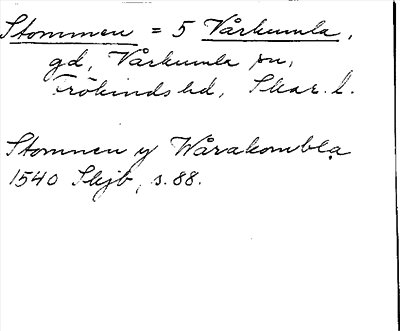 Stommen = 5 Vårkumla,
gd, Vårkumla sn,
Frökinds hd, Skar. l.
Stommen y Wårakombla
1540 Skjb, s. 88.